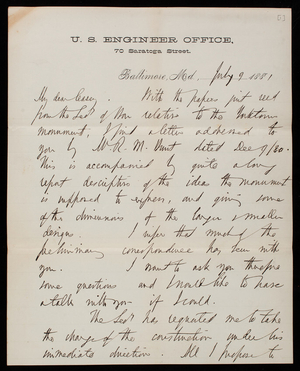 U. S. ENGINEER OFFICE,
70 Saratoga Street.
Baltimore, Md., July 9 1881
My dear Casey, With the papers just recd
from the Secy of War relative to the Yorktown
monument, I find a letter addressed to
you by Mr R. M. Hunt dated Dec 9/80.
This is accompanied by quite a long
report descriptive of the ideas the monument
is supposed to express, and giving some
of the dimensions of the larger & smaller
designs. I infer that much of the
preliminary correspondence has been with
you. I want to ask you therefore
some questions and I would like to have
a talk with you if I could.
The Secy has requested me to take
the charge of the construction under his
immediate direction. All I propose to